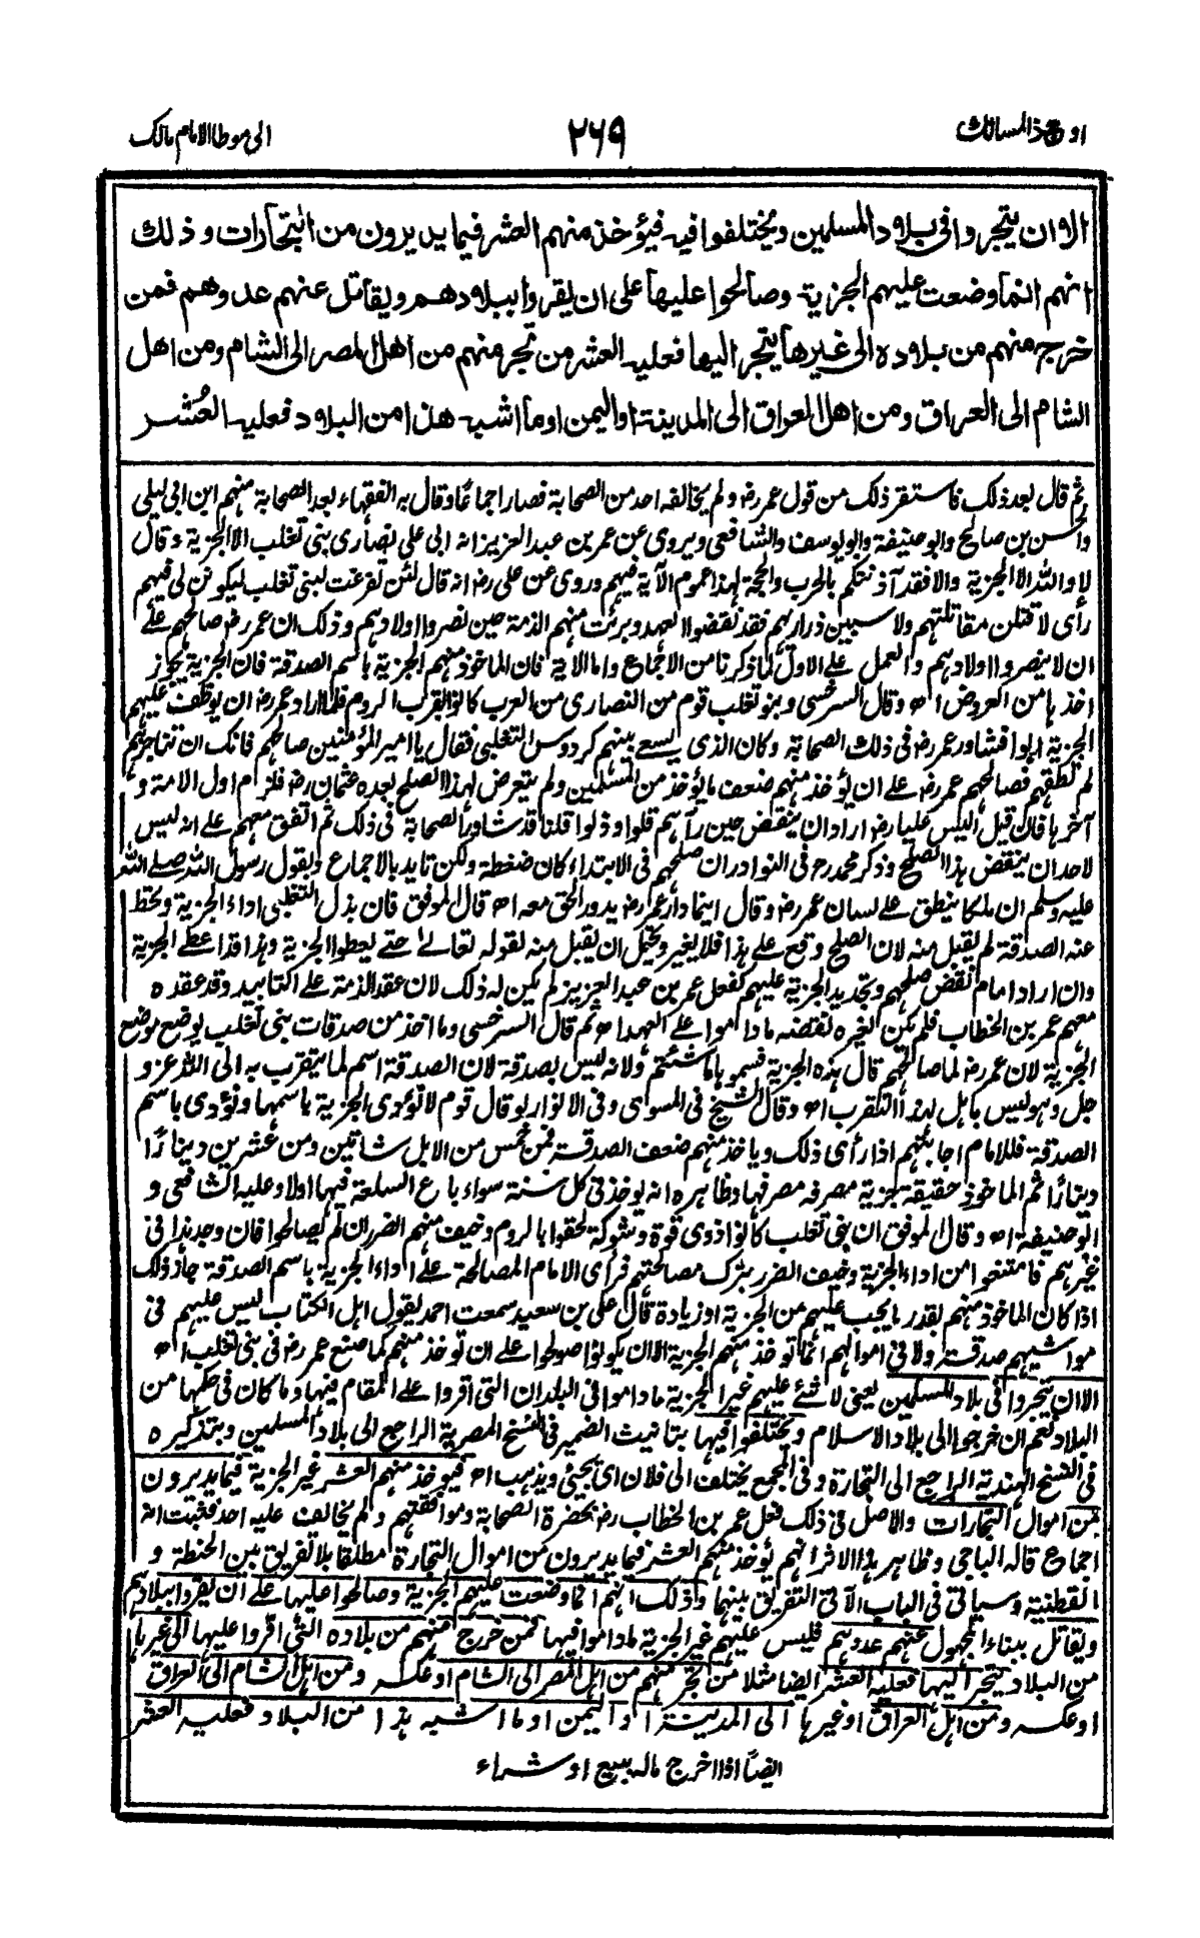 اوجز المسالك ٢٦٩ الى موطا الامام مالك
الا ان يتجروا فى بلاد المسلمين ويختلفوا فيه فيؤخذ منهم العشر فيما يديرون من التجارات وذلك
انهم انما وضعت عليهم الجزية وصالحوا عليها على ان يقروا ببلادهم ويقاتل عنهم عدوهم فمن
خرج منهم من بلاده الى غيرها يتجر اليها فعليه العشر من تجر منهم من اهل مصر الى الشام ومن اهل
الشام الى العراق ومن اهل العراق الى المدينة او اليمن او ما اشبه هذا من البلاد فعليه العُشر
ثم قال بعد ذلك فاستقر ذلك من قول عمر رض ولم يخالفه احد من الصحابة فصار اجماعًا وقال به الفقهاء بعد الصحابة منهم ابن ابى ليلى
والحسن بن صالح وابو حنيفة وابو يوسف والشافعى ويروى عن عمر بن عبد العزيز انه ابى على نصارى بنى تغلب الا الجزية وقال
لا والله الا الجزية والا فقد آذنتكم بالحرب والحجة لهذا عموم الآية فيهم وروى عن على رض انه قال لئن تفرغت لبنى تغلب ليكونن لى فيهم
رأى لاقتلن مقاتلتهم ولاسبين ذراريهم فقد نقضوا العهد وبرئت منهم الذمة حين نصروا اولادهم وذلك ان عمر رض صالحهم على
ان لا ينصروا اولادهم والعمل على الاول لما ذكرنا من الاجماع واما الآية فان الماخوذ منهم الجزية باسم الصدقة فان الجزية يجوز
اخذها من العروض اھ وقال السرخسى وبنو تغلب قوم من النصارى من العرب كانوا بقرب الروم فلما اراد عمر رض ان يوظف عليهم
الجزية ابوا فشاور عمر رض فى ذلك الصحابة وكان الذى يسعى بينهم كردوس التغلبى فقال يا امير المؤمنين صالحهم فانك ان تناجزهم
لم تطقهم فصالحهم عمر رض على ان يؤخذ منهم ضعف ما يؤخذ من المسلمين ولم يتعرض لهذا الصلح بعده عثمان رض فلزم اول الامة و
آخرها فان قيل اليس عليا رض اراد ان ينقض حين رآهم قلوا وذلوا قلنا قد شاور الصحابة فى ذلك ثم اتفق معهم على انه ليس
لاحد ان ينقض هذا الصلح وذكر محمد رح فى النوادر ان صلحهم فى الابتداء كان ضغطة ولكن تايد بالاجماع وبقول رسول الله صلى الله
عليه وسلم ان ملكا ينطق على لسان عمر رض وقال اينما دار عمر رض يدور الحق معه اھ قال الموفق فان بذل التغلبى اداء الجزية وتحط
عنه الصدقة لم يقبل منه لان الصلح وقع على هذا فلا يغير ويحتمل ان يقبل منه لقوله تعالى حتى يعطوا الجزية وهذا قد اعطى الجزية
وان اراد امام نقض صلحهم وتجديد الجزية عليهم كفعل عمر بن عبد العزيز لم يكن له ذلك لان عقد الذمة على التابيد وقد عقده
معهم عمر بن الخطاب فلم يكن لغيره نقضه ما داموا على العهد اھ ثم قال السرخسى وما اخذ من صدقات بنى تغلب يوضع موضع
الجزية لان عمر رض لما صالحهم قال هذه الجزية فسموها ما شئتم ولانه ليس بصدقة لان الصدقة اسم لما يتقرب به الى الله عز و
جل وهو ليس باهل لهذا التقرب اھ وقال الشيخ فى المسوى وفى الانوار لو قال قوم لا نؤدى الجزية باسمها ونؤدى باسم
الصدقة فللامام اجابتهم اذا رأى ذلك وياخذ منهم ضعف الصدقة فمن خمس من الابل شاتين ومن عشرين دينارًا
دينارًا ثم الماخوذ حقيقة جزية مصرفه مصرفها وظاهره انه يوخذ فى كل سنة سواء باع السلعة فيها اولا وعليه الشافعى و
ابو حنيفة اھ وقال الموفق ان بنى تغلب كانوا ذوى قوة وشوكة لحقوا بالروم وخيف منهم الضرر ان لم يصالحوا فان وجد هذا فى
غيرهم فامتنعوا من اداء الجزية وخيف الضرر بترك مصالحتهم فرأى الامام المصالحة على اداء الجزية باسم الصدقة جاز ذلك
اذا كان الماخوذ منهم بقدر ما يجب عليهم من الجزية او زيادة قال على بن سعيد سمعت احمد يقول اهل الكتاب ليس عليهم فى
مواشيهم صدقة ولا فى اموالهم انما توخذ منهم الجزية الا ان يكونوا صولحوا على ان توخذ منهم كما صنع عمر رض فى بنى تغلب اھ
الا ان يتجروا فى بلاد المسلمين يعنى لا شئ عليهم غير الجزية ما داموا فى البلدان التى اقروا على المقام فيها وما كان فى حكمها من
البلاد نعم ان خرجوا الى بلاد الاسلام ويختلفوا فيها بتانيث الضمير فى النسخ المصرية الراجع الى بلاد المسلمين وبتذكيره
فى النسخ الهندية الراجع الى التجارة وفى المجمع يختلف الى فلان اى يجئ ويذهب اھ فيوخذ منهم العشر غير الجزية فيما يديرون
من اموال التجارات والاصل فى ذلك فعل عمر بن الخطاب رض بحضرة الصحابة وموافقتهم ولم يخالف عليه احد فثبت انه
اجماع قاله الباجى وظاهر هذا الاثر انهم يؤخذ منهم العشر فيما يديرون من اموال التجارة مطلقا بلا تفريق بين الحنطة و
القطنية وسياتى فى الباب الآتى التفريق بينهما وذلك انهم انما وضعت عليهم الجزية وصالحوا عليها على ان يقروا ببلادهم
ويقاتل ببناء المجهول عنهم عدوهم فليس عليهم غير الجزية ما داموا فيها فمن خرج منهم من بلاده التى اقروا عليها الى غيرها
من البلاد يتجر اليها فعليه العشر ايضا مثلا من تجر منهم من اهل مصر الى الشام او عكسه ومن اهل الشام الى العراق
او عكسه ومن اهل العراق او غيرها الى المدينة او اليمن او ما اشبه هذا من البلاد فعليه العشر
ايضًا اذا اخرج ماله ببيع او شراء